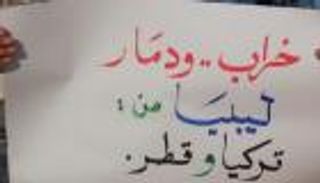 خراب..ودمار
ليبيا من:
تركيا و قطر.